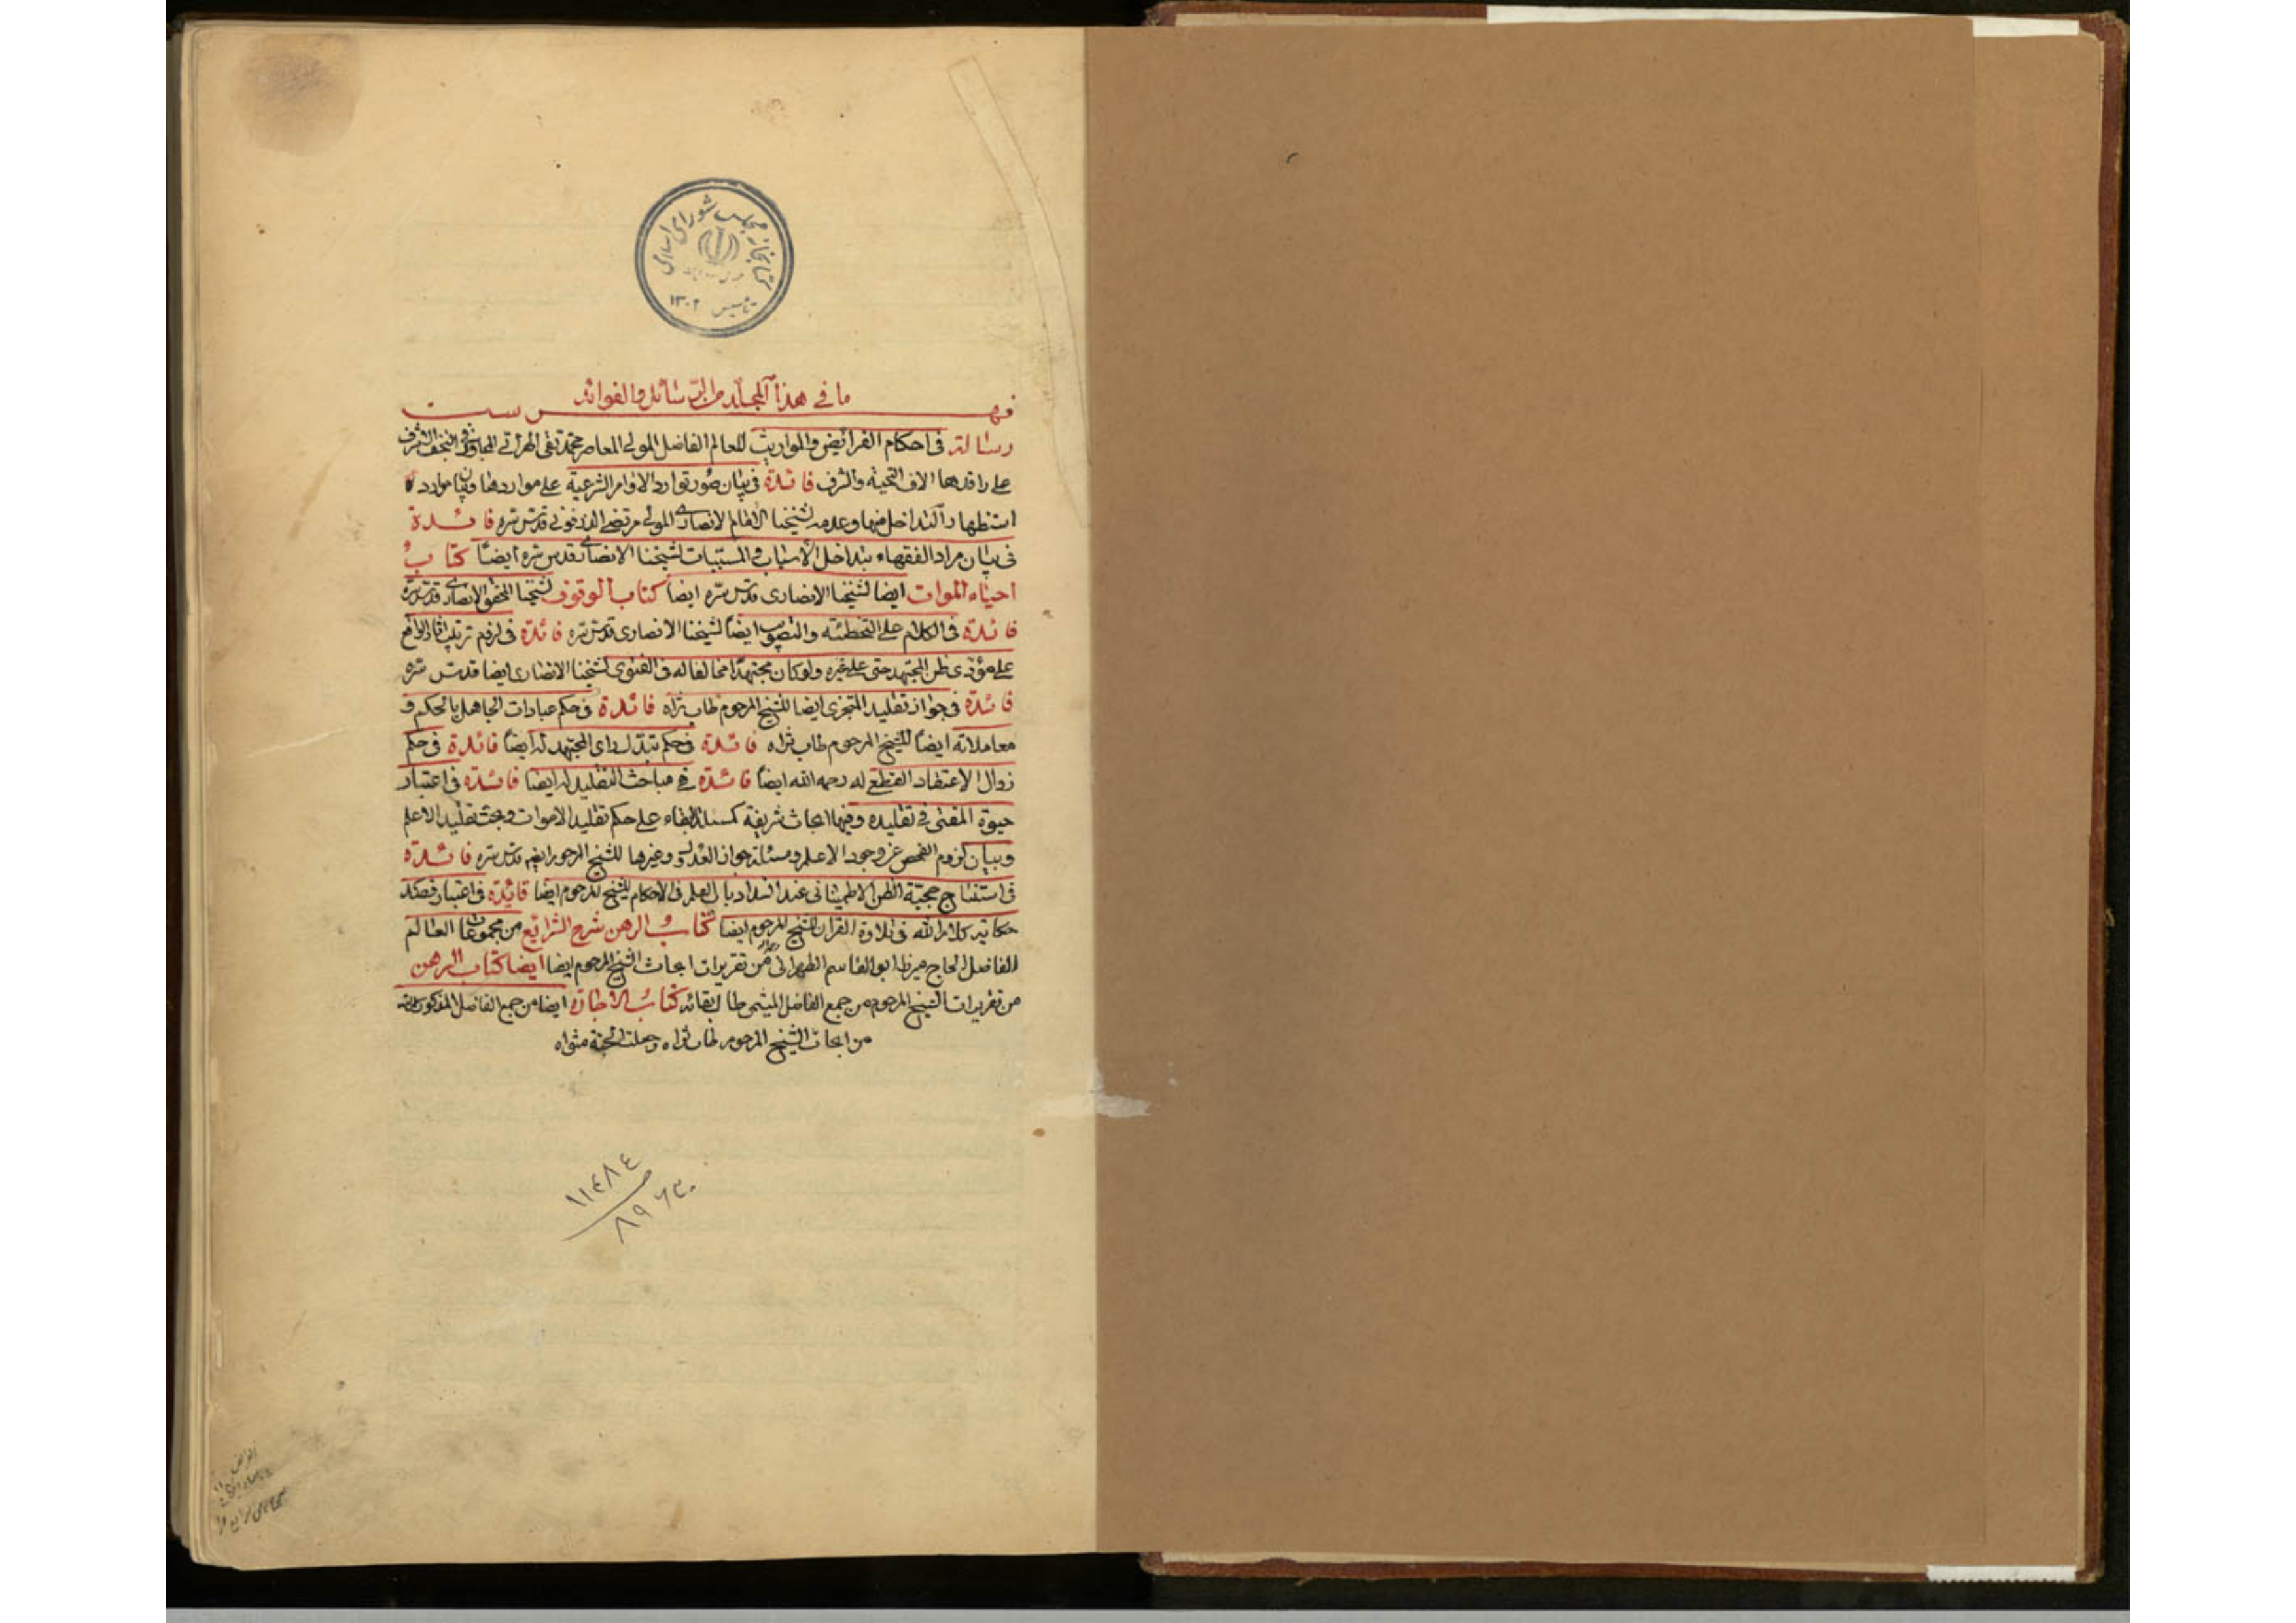 كتابخانه مجلس شورای اسلامی
تأسیس ۱۳۰۲
ما في هذا المجلد من الرسائل والفوائد
فهرست
رسالة في احكام الفرائض والمواريث للعالم الفاضل المولى المعاصر محمد تقي الهراتي المجاور في النجف الاشرف
على راقدها الاف التحية والشرف فائدة في بيان صور توارد الاوامر الشرعية على مواردها وبيان موارد
استظهار التداخل فيها وعدمه لشيخنا الامام الانصاري المولى مرتضى الدزفولي قدس سره فائدة
في بيان مراد الفقهاء بتداخل الاسباب والمسببات لشيخنا الانصاري قدس سره ايضاً كتاب
احياء الموات ايضا لشيخنا الانصاري قدس سره ايضاً كتاب الوقوف لشيخنا المحقق الانصاري قدس سره
فائدة في الكلام على التخطئة والتصويب ايضاً لشيخنا الانصاري قدس سره فائدة في لزوم ترتيب اثار الواقع
على مؤدى ظن المجتهد حتى على غيره ولو كان مجتهداً مخالفا له في الفتوى لشيخنا الانصاري ايضا قدس سره
فائدة في جواز تقليد المتجزي ايضا للشيخ المرحوم طاب ثراه فائدة في حكم عبادات الجاهل بالحكم و
معاملاته ايضاً للشيخ المرحوم طاب ثراه فائدة في حكم تبدل راى المجتهد له ايضاً فائدة في حكم
زوال الاعتقاد القطعي له رحمه الله ايضاً فائدة في مباحث التقليد له ايضا فائدة في اعتبار
حيوة المفتى في تقليده وفيها ابحاث شريفة كمسئلة البقاء على حكم تقليد الاموات وبحث تقليد الاعلم
وبيان لزوم الفحص عن وجود الاعلم ومسئلة جواز العدول وغيرها للشيخ المرحوم ايضا قدس سره فائدة
في استنتاج حجية الظن الاطميناني عند انسداد باب العلم في الاحكام للشيخ المرحوم ايضا فائدة في اعتبار قصد
حكاية كلام الله في تلاوة القران للشيخ المرحوم ايضا كتاب الرهن شرح الشرائع من مجموعات العالم
الفاضل الحاج ميرزا ابو القاسم الطهراني من تقريرات ابحاث الشيخ المرحوم ايضا ايضا كتاب الرهن
من تقريرات الشيخ المرحوم من جمع الفاضل الميثمي طال بقائه كتاب الاجارة ايضا من جمع الفاضل المذكور
من ابحاث الشيخ المرحوم طاب ثراه وجعلت الجنة مثواه
١١٤٨٤
٨٩٦٣٠